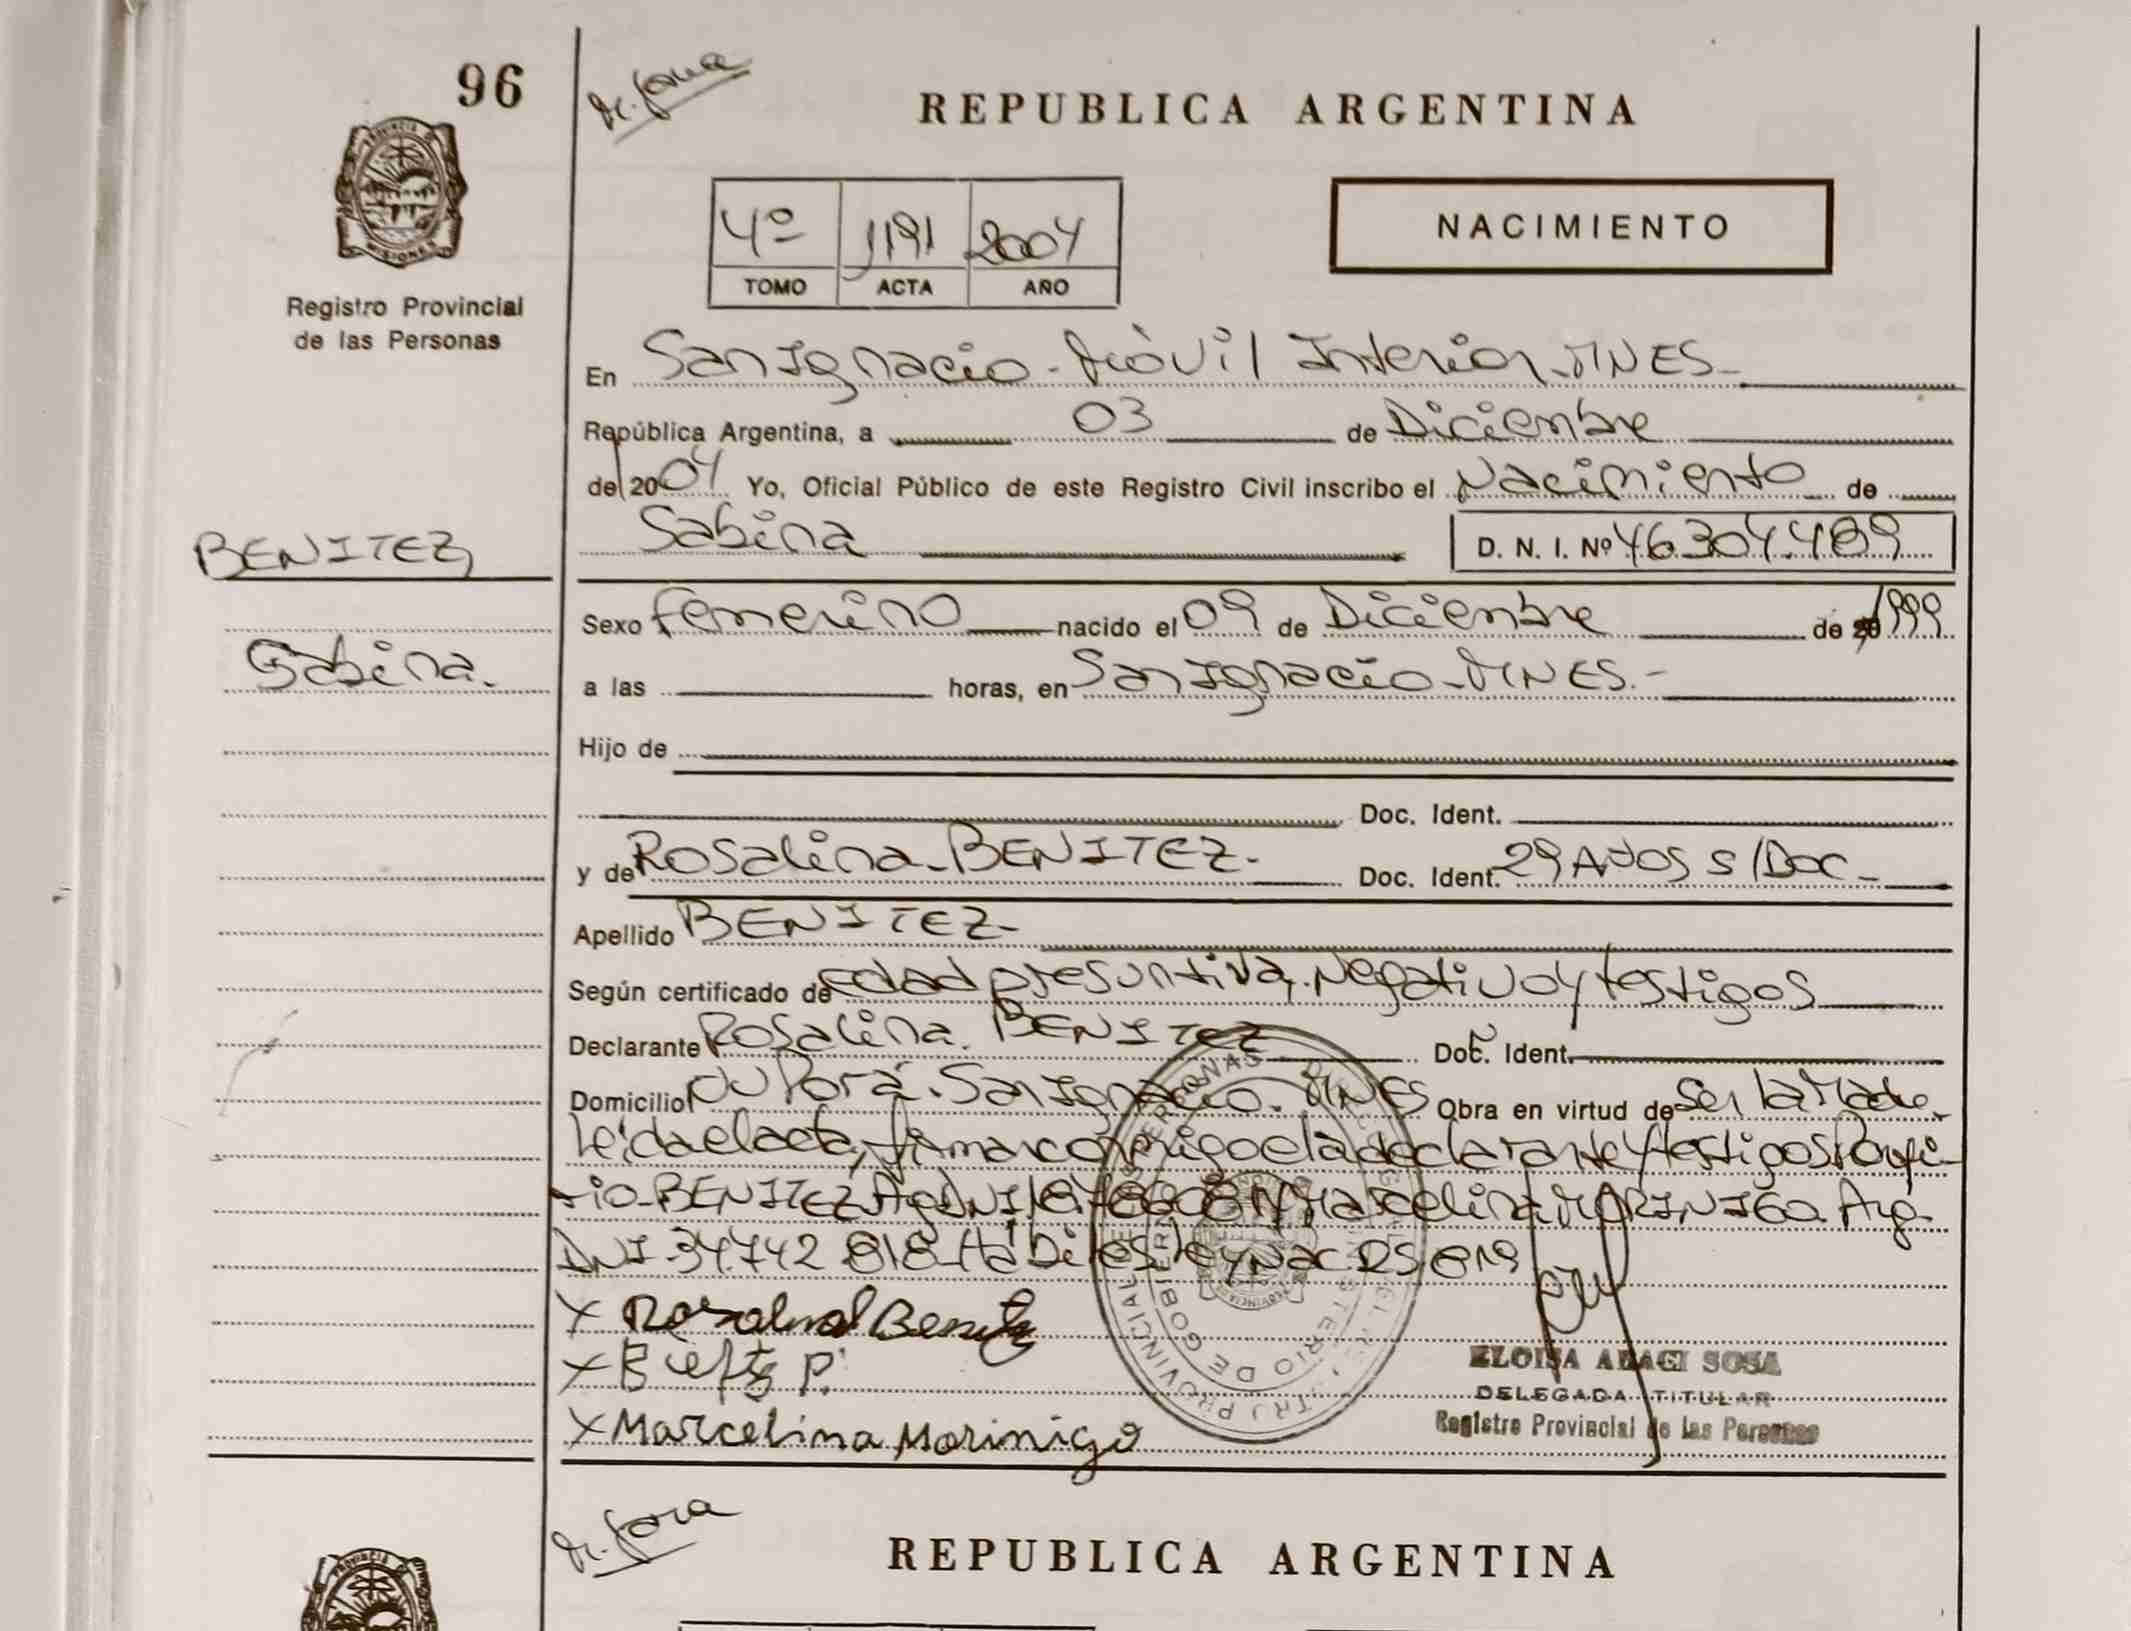 96
REPUBLICA ARGENTINA
4º 1191 2004
TOMO ACTA AÑO
NACIMIENTO
Registro Provincial
de las Personas
En San Ignacio - Móvil Interior - MNES -
República Argentina, a 03 de Diciembre
de 2004 Yo, Oficial Público de este Registro Civil inscribo el Nacimiento de
Sabina D. N. I. Nº 46.304.489
BENITEZ,
Sabina.
Sexo Femenino nacido el 09 de Diciembre de 1999
a las horas, en San Ignacio - MNES. -
Hijo de
Doc. Ident.
y de Rosalina - BENITEZ - Doc. Ident. 29 AÑOS S/DOC -
Apellido BENITEZ -
Según certificado de edad presuntiva, Negativo y testigos
Declarante Rosalina. BENITEZ Doc. Ident.
Domicilio Ñu Porá. San Ignacio. MNES Obra en virtud de ser la Madre.
Leída el acta, firman conmigo la declarante y testigos
BENITEZ Arg. DNI Marcelina MORINIGO Arg.
DNI 34.742 818 - Hábiles ley Nac
X Rosalina Benitez
X P.
X Marcelina Morinigo
ELOISA ADAGI SOSA
DELEGADA TITULAR
Registro Provincial de las Personas
REPUBLICA ARGENTINA